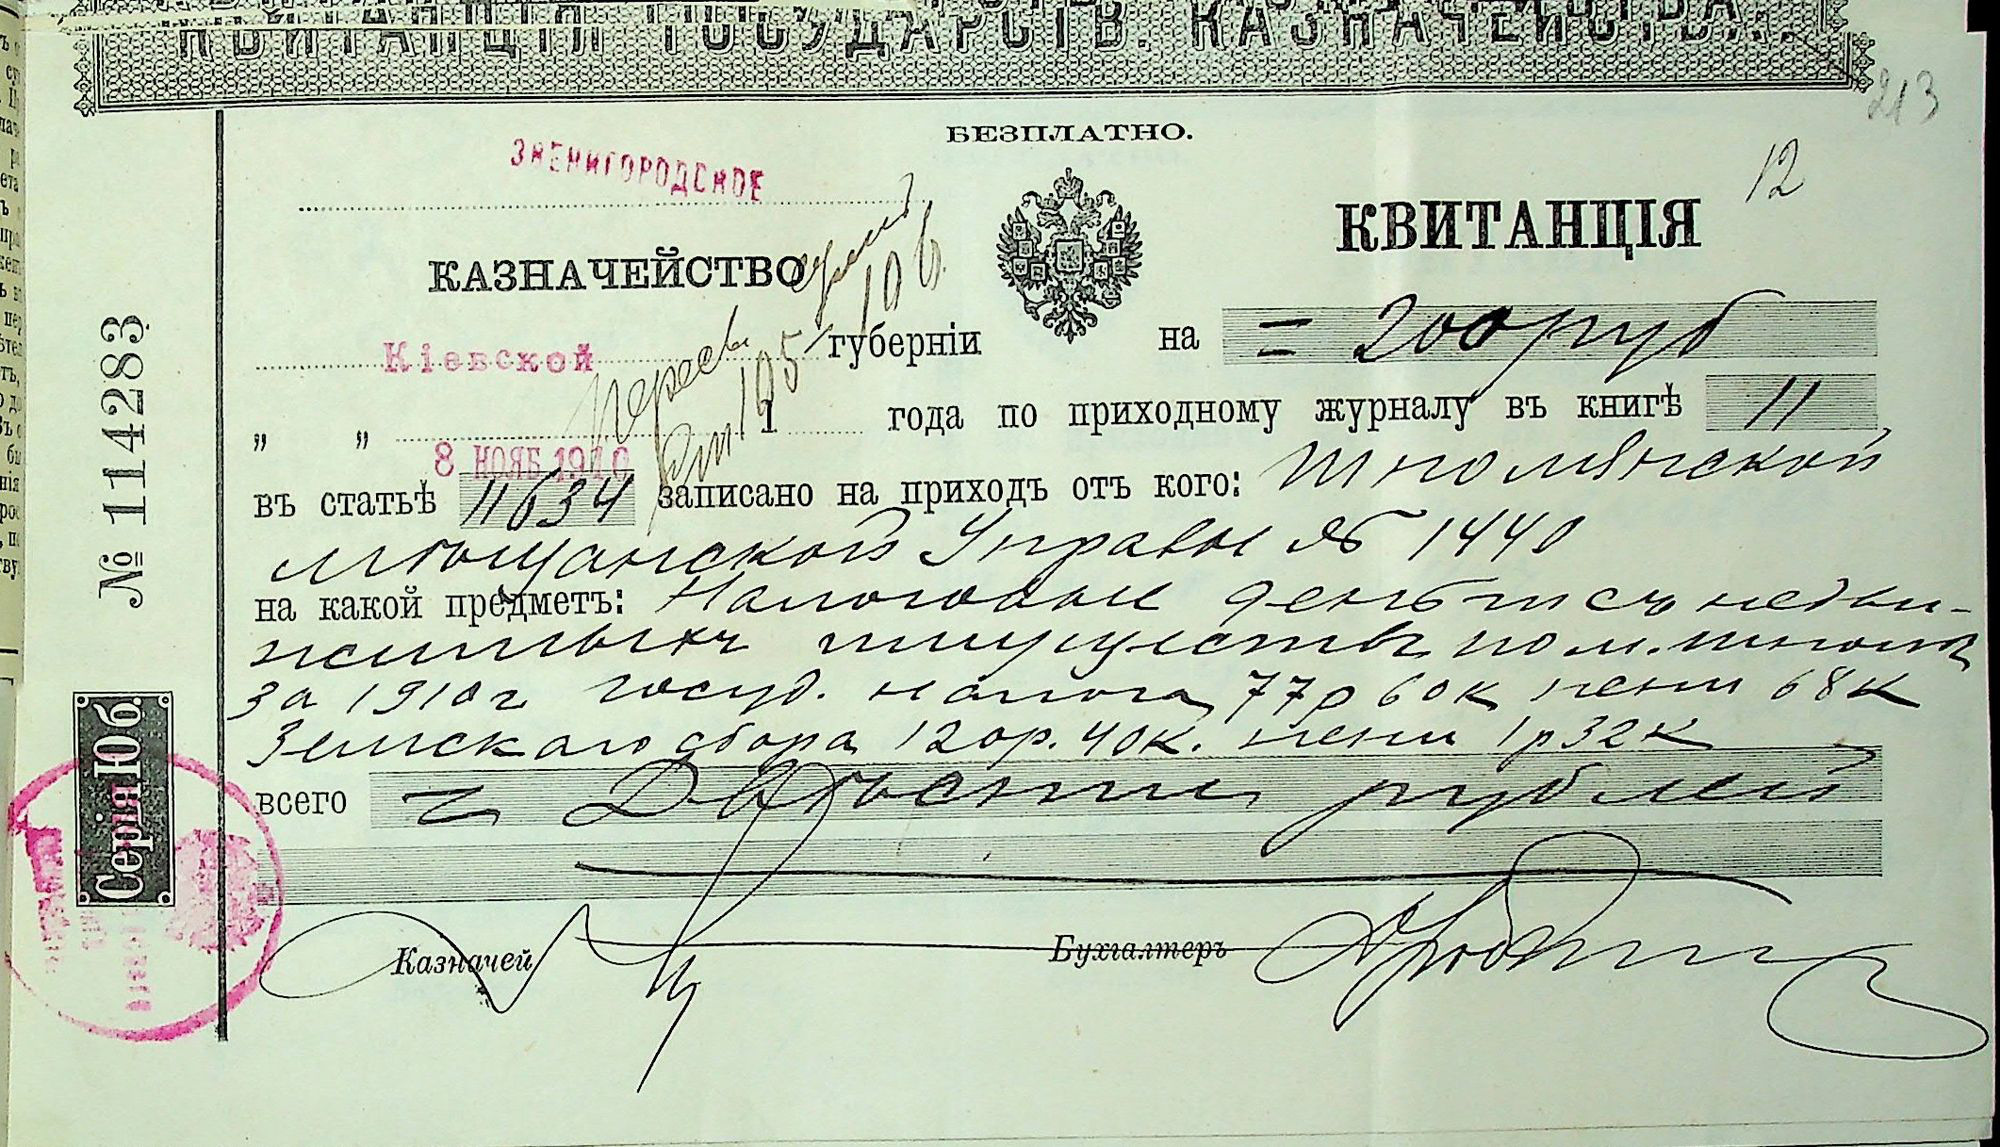 КВИТАНЦІЯ ГОСУДАРСТВ. КАЗНАЧЕЙСТВА.
213
БЕЗПЛАТНО.
12
ЗВЕНИГОРОДСКОЕ
КАЗНАЧЕЙСТВО
КВИТАНЦІЯ
106
Кіевской губерніи на = 200 руб
105
" " 1 года по приходному журналу въ книгѣ 11
8 НОЯБ 1910
въ статьѣ 11634 записано на приходъ отъ кого: Шполянской
Мѣщанской Управы № 1440
на какой предметъ: Налоговые деньги съ недви-
жимыхъ имуществъ по м. Шполѣ
за 1910 г госуд. налога 77р 60к пени 68к
Земскаго сбора 120р. 40к. пени 1р 32к
всего = Двѣсти рублей
Казначей
Бухгалтеръ
№ 114283
Серія Юб.